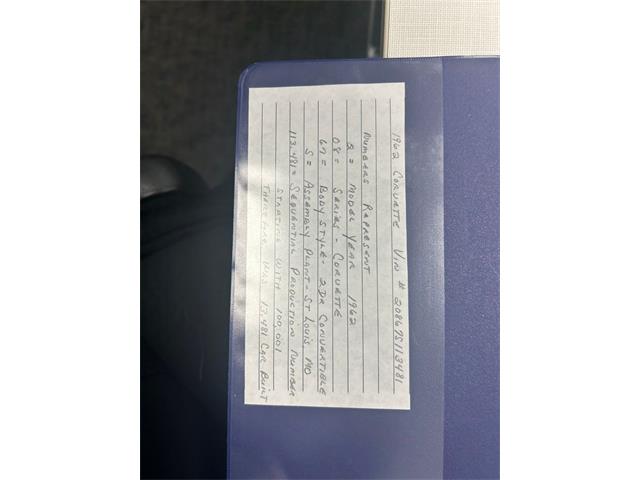 1962 CORVETTE VIN # 20867S113481
NUMBERS REPRESENT
2 = MODEL YEAR 1962
08 = SERIES - CORVETTE
67 = BODY STYLE - 2 DR CONVERTIBLE
S = ASSEMBLY PLANT - ST LOUIS, MO
113,481 = SEQUENTIAL PRODUCTION NUMBER
STRATING WITH 100,001
THEREFORE, WAS 13,481 CAR BUILT